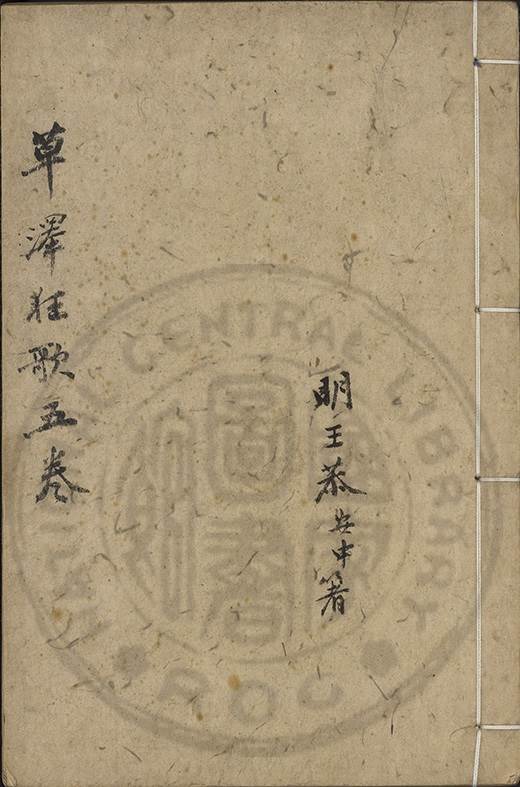 明王恭安中著
草澤狂歌五卷